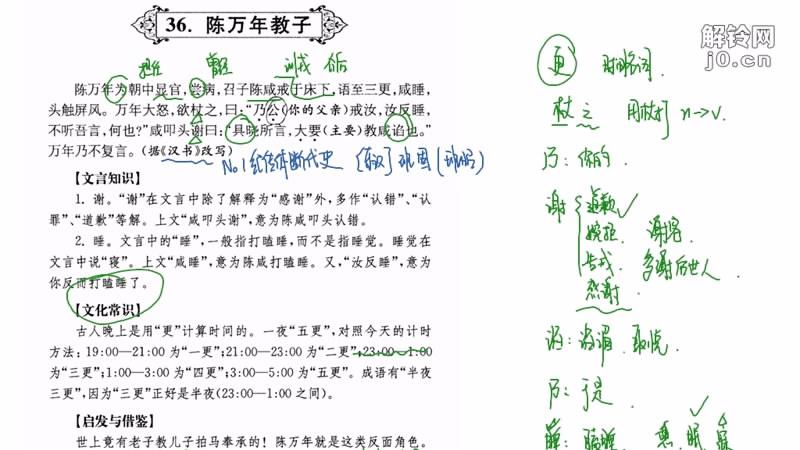 36. 陈万年教子
解铃网
j0.cn
担任 曾经 训戒 在
陈万年为朝中显官，尝病，召子陈咸戒于床下，语至三更，咸睡，
头触屏风。万年大怒，欲杖之，曰：“乃公（你的父亲）戒汝，汝反睡，
不听吾言，何也？”咸叩头谢曰：“具晓所言，大要（主要）教咸谄也。”
万年乃不复言。（据《汉书》改写）
No.1 纪传体断代史 [东汉] 班固
【文言知识】
1. 谢。“谢”在文言中除了解释为“感谢”外，多作“认错”、“认
罪”、“道歉”等解。上文“咸叩头谢”，意为陈咸叩头认错。
2. 睡。文言中的“睡”，一般指打瞌睡，而不是指睡觉。睡觉在
文言中说“寝”。上文“咸睡”，意为陈咸打瞌睡。又，“汝反睡”，意为
你反而打瞌睡了。
【文化常识】
古人晚上是用“更”计算时间的。一夜“五更”，对照今天的计时
方法：19:00—21:00 为“一更”；21:00—23:00 为“二更”；23:00—1:00
为“三更”；1:00—3:00 为“四更”；3:00—5:00 为“五更”。成语有“半夜
三更”，因为“三更”正好是半夜（23:00—1:00 之间）。
【启发与借鉴】
世上竟有老子教儿子拍马奉承的！陈万年就是这类反面角色。
更 时间名词
杖之 用杖打 n→v.
乃：你的
谢 道歉
婉拒 谢客
告戒 多谢后世人
感谢
乃：于是
睡：瞌睡 眠